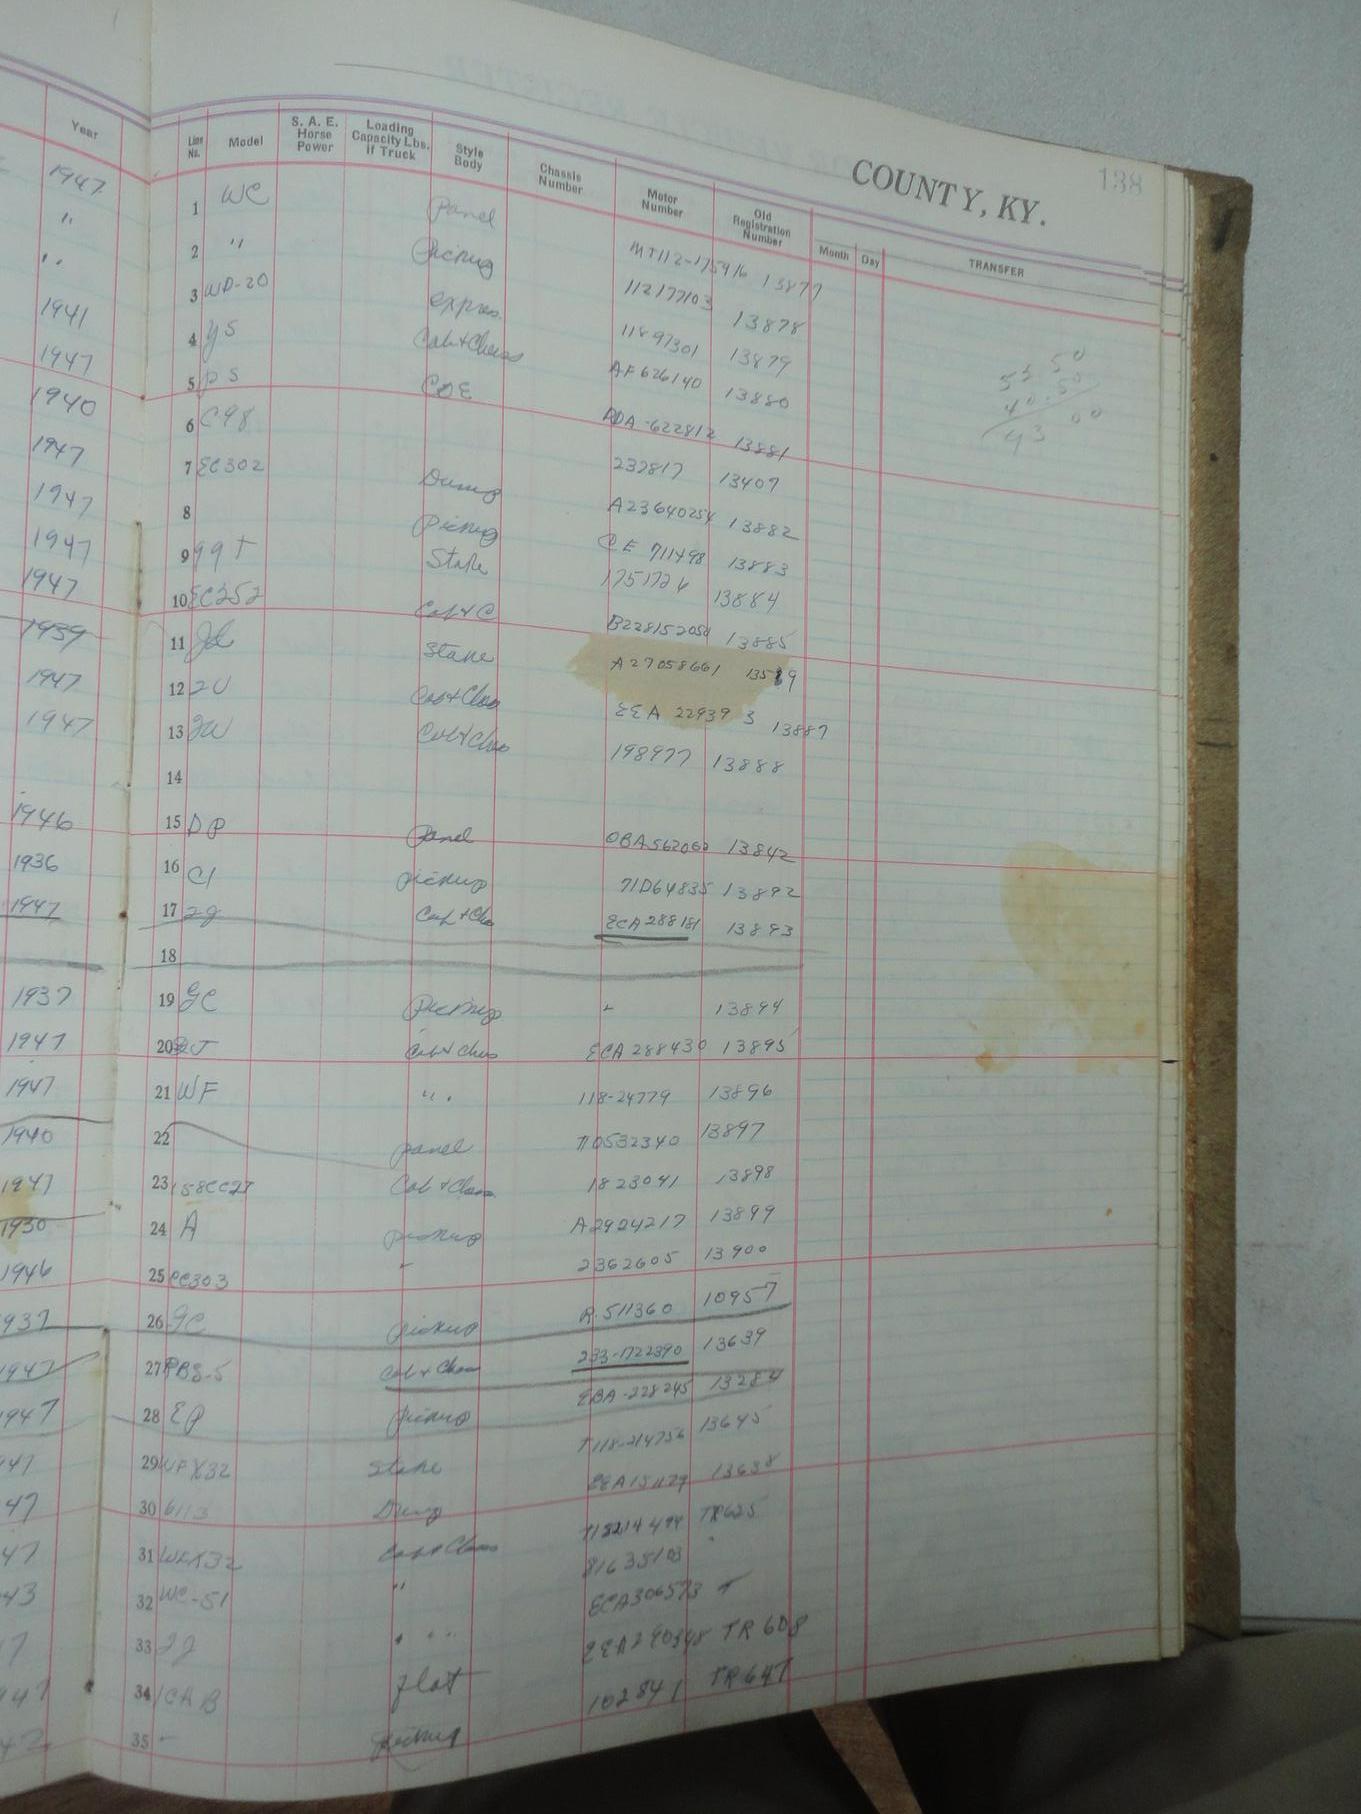 COUNTY, KY.
138
Year
Line No. Model S. A. E. Horse Power Loading Capacity Lbs. If Truck Style Body Chassis Number Motor Number Old Registration Number Month Day TRANSFER
1947 1 WC Panel MT112-175916 13877
" 2 " Pickup 112177103 13878
" 3 WD-20 Express 11897301 13879
1941 4 YS Cab + Chass AF626140 13880
1947 5 PS COE PDA-622812 13881
1940 6 C98 232817 13407
1947 7 EC302 Dump A23640254 13882
1947 8 Pickup CE 711498 13883
1947 9 99T Stake 1751726 13884
1947 10 EC252 Cab + C B228152054 13885
1939 11 Stake A27058661
1947 12 2U Cab + Chas EEA 229393 13887
1947 13 2W Cab + Chas 198977 13888
14
1946 15 DP Panel OBA562062 13842
1936 16 C1 Pickup 71D64835 13892
1947 17 2J Cab + Cha ECA 288181 13893
18
1937 19 GC Pickup - 13894
1947 20 2J Cab + Chas ECA 288430 13895
1947 21 WF " " 118-24779 13896
1940 22 Panel T10532340 13897
1947 23 158CC2T Cab + Chass 1823041 13898
1930 24 A Pickup A2924217 13899
1946 25 CC303 - 2362605 13900
1937 26 GC Pickup R. 511360 10957
1947 27 PBS-5 Cab + Chass 233-1722390 13639
1947 28 EP Pickup EBA-228245 13284
47 29 WFX32 Stake T118-214756 13645
47 30 6113 Dump EEA151129 13638
47 31 WEX32 Cab + Chass T18214494 TR625
43 32 WC-51 " 81635103 "
7 33 2J " " " ECA306573 T
47 34 1CAB Flat EEA290348 TR 608
47 35 - Pickup 102841 TR647
53 50
40.50
43 00